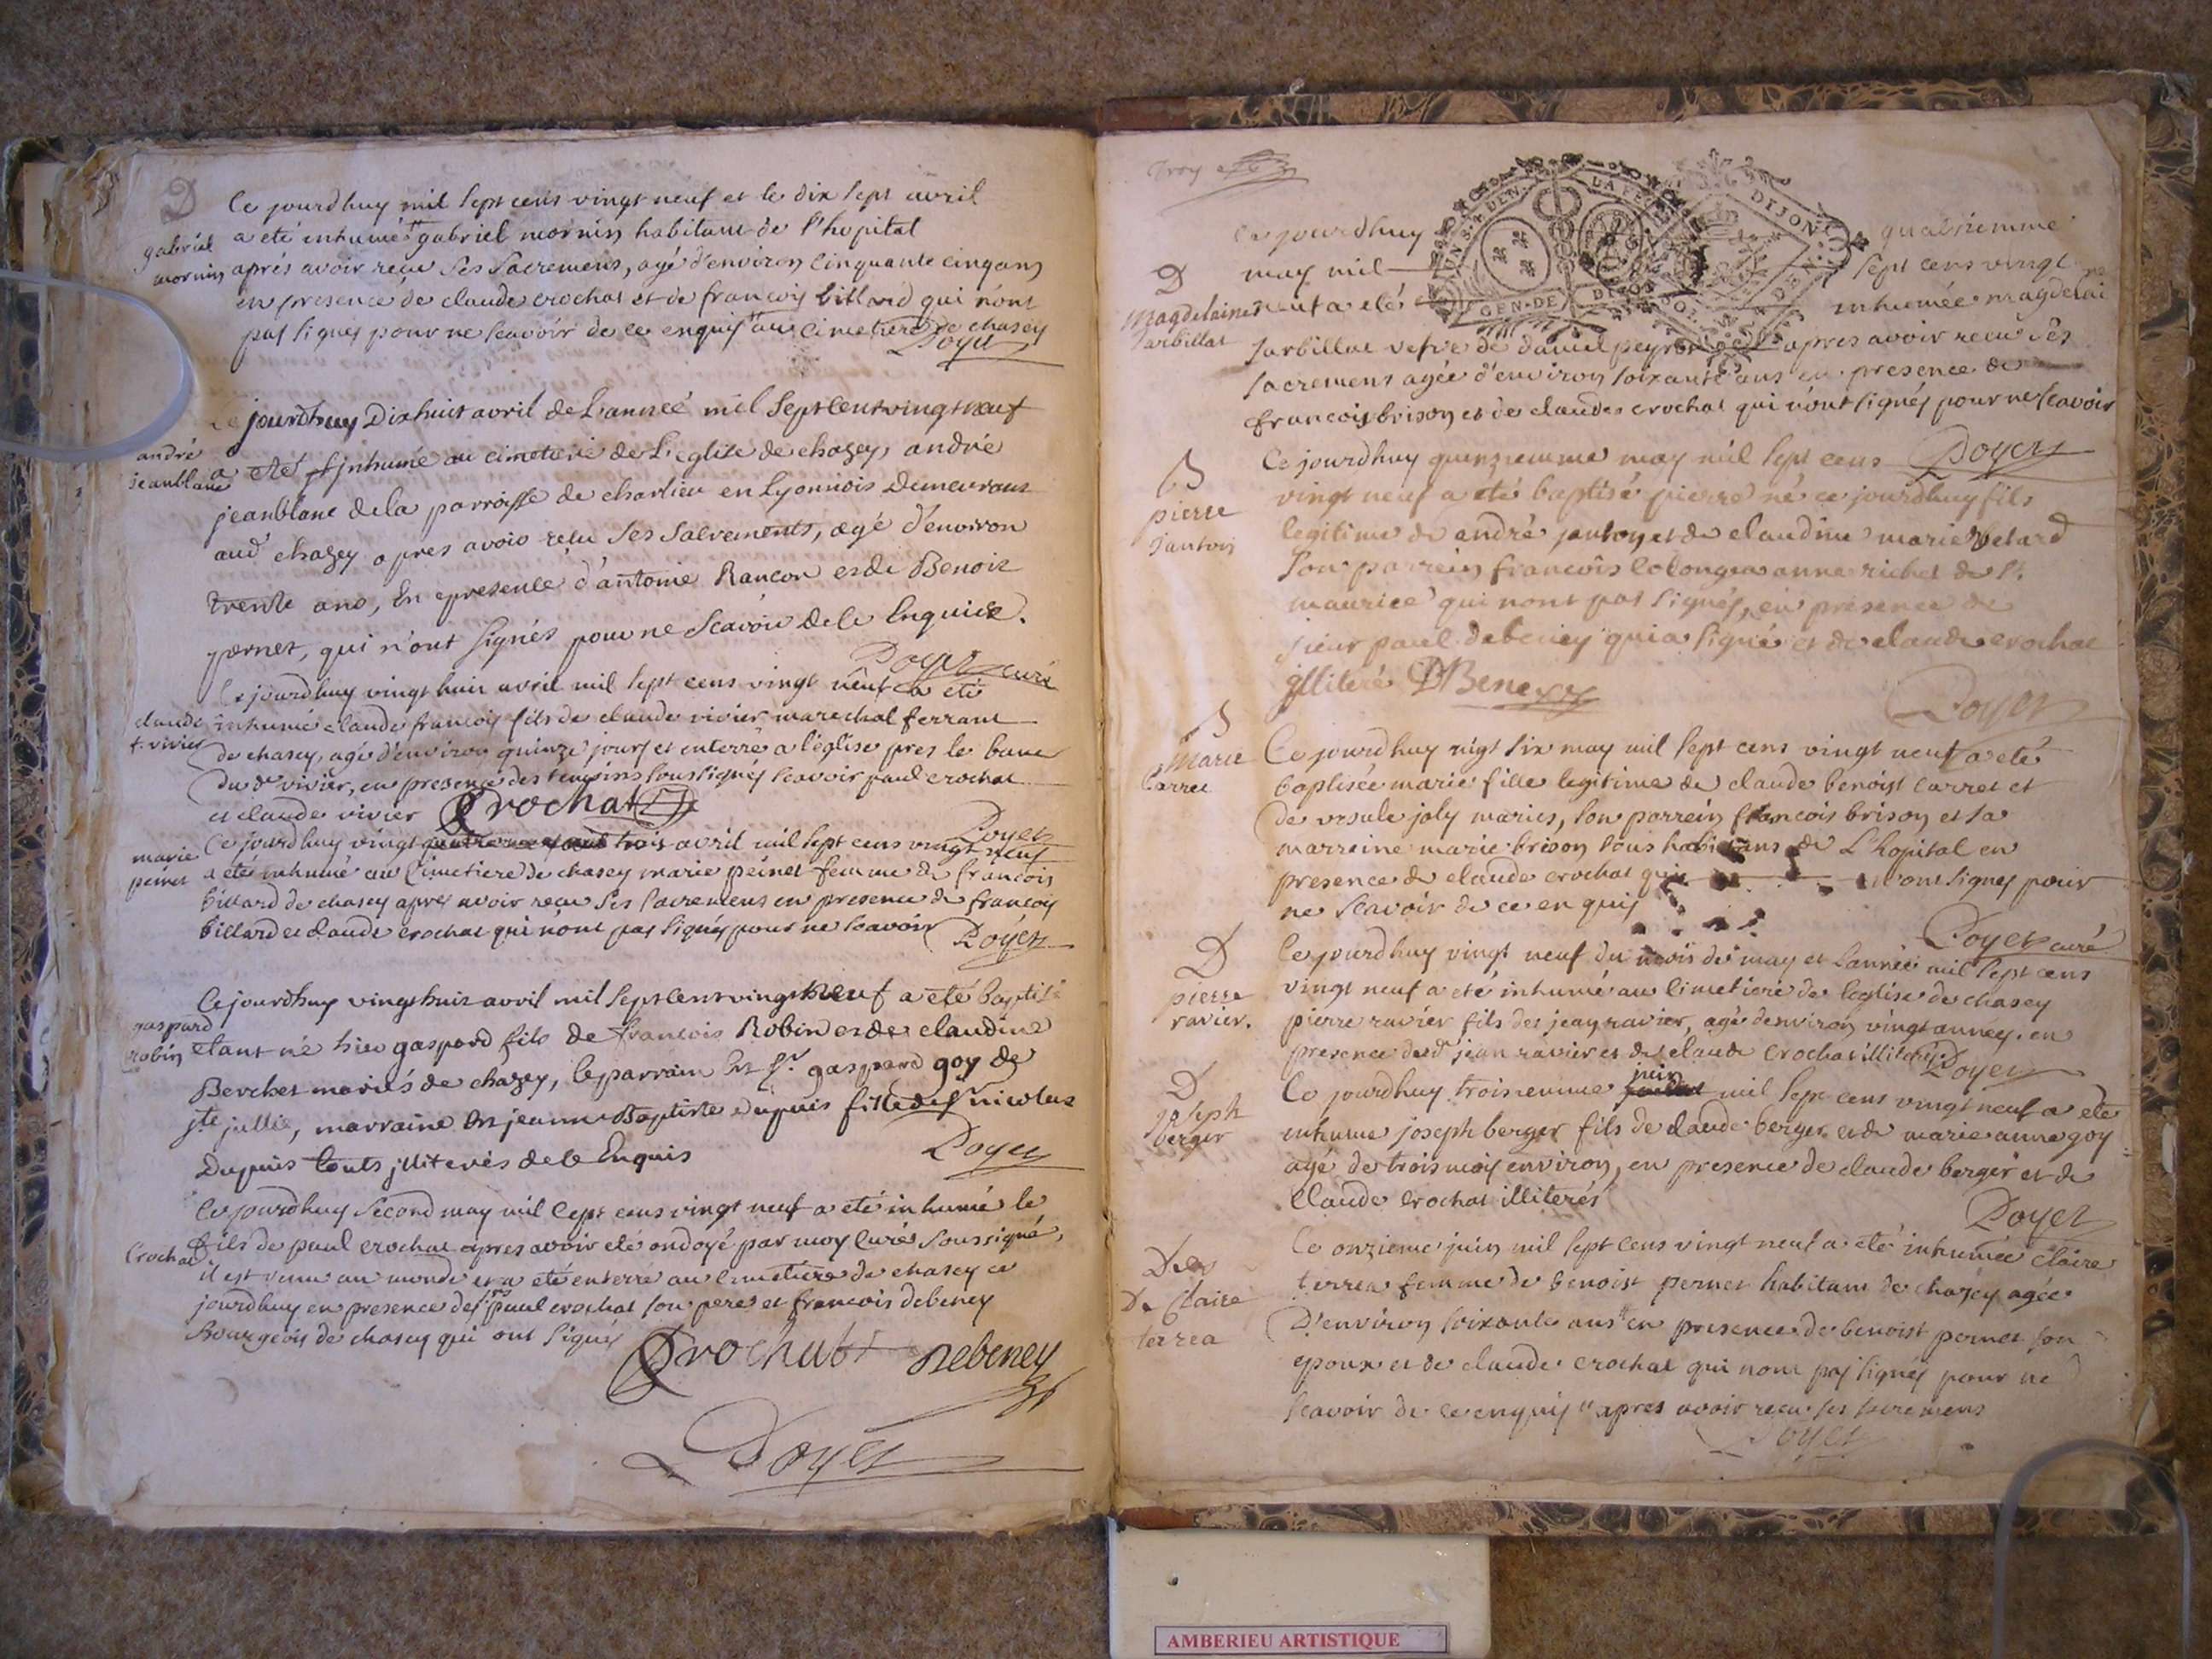 D
Ce jourdhuy mil sept cens vingt neuf et le dix sept avril
gabriel
mornin
a eté inhumé gabriel mornin habitant de l'hopital
aprés avoir reçu ses sacremens, agé d'environ cinquante cinq ans
en presence de claude crochat et de francois billard qui n'ont
pas signés pour ne scavoir de ce enquis au cimetiere de chasey
Doyen
Ce jourdhuy Dixhuit avril de L'année mil Sept Cent vingt neuf
andré
jeanblanc
a eté inhumé au cimetiere de L'eglise de chazey, andrée
jeanblanc de la parroisse de charlieu en Lyonnois Demeurant
aud chazey apres avoir reçu ses Sacrements, agé d'environ
trente ans, En presence d'antoine Rançon et de Benoit
pernet, qui n'ont signés pour ne Scavoir de Ce Enquis.
Doyen curé
Ce jourdhuy vingt huit avril mil sept cens vingt neuf a eté
claude
f. vivier
inhumé claude francois fils de claude vivier marechal ferrant
de chasey, agé d'environ quinze jours et enterré a l'eglise pres le banc
du d vivier, en presence des temoins soussignés scavoir paul crochat
et claude vivier Crochat
Doyen
marie
peinet
Ce jourdhuy vingt trois avril mil sept cens vingt neuf
a eté inhumé au Cimetiere de chasey marie peinet femme de francois
billard de chasey apres avoir reçu ses sacremens en presence de francois
billard et claude crochat qui n'ont pas signés pour ne scavoir Doyen
Ce jourdhuy vingt huit avril mil Sept Cent vingt neuf a eté baptisé
gaspard
robin
etant né hier gaspard fils de francois Robin et de claudine
Berchet mariés de chazey, le parrain Est sr. gaspard goy de
ste jullie, marraine Est jeanne Baptiste dupuis fille de sr nicolas
Dupuis touts jlliterés de Ce Enquis
Doyen
Ce jourdhuy second may mil sept cens vingt neuf a eté inhumé le
Crochat
fils de paul crochat apres avoir eté ondoyé par moy Curé Soussigné,
il est venu au monde et a eté enterré au Cimetiere de chasey ce
jourdhuy en presence des srs paul crochat son pere et francois debeney
Bourgeois de chasey qui ont signés
Crochat Debeney
Doyen
Troy
Ce jourdhuy quatriemme
GEN. DE DIJON
LA FE
DIJON
D
Magdelaine
Jarbillat
may mil sept cens vingt
neuf a eté inhumée magdelaine
Jarbillat vefve de daniel peyret apres avoir reçu ses
sacremens agée d'environ soixante ans en presence de
francois brison et de claude crochat qui n'ont signés pour ne scavoir
Doyen
B
pierre
Jantoin
Ce jourdhuy quinziemme may mil sept cens
vingt neuf a eté baptisé pierre né ce jourdhuy fils
legitime de andré et de claudine marie
son parrein francois Colonge anne richet de St.
maurice qui n'ont pas signés, en presence de
sieur paul debeney qui a signé et de claude crochat
jlliteré DBeney
Doyen
B
Marie
Carret
Ce jourdhuy vigt six may mil sept cens vingt neuf a eté
baptisée marie fille legitime de claude benoist carret et
de ursule joly mariés, son parrein francois brison et sa
marreine marie brison tous habitans de L'hopital en
presence de claude crochat qui n'ont signés pour
ne scavoir de ce enquis
Doyen curé
D
pierre
ravier.
Ce jourdhuy vingt neuf du mois de may et L'année mil sept cens
vingt neuf a eté inhumé au Cimetiere de l'eglise de chasey
pierre ravier fils de jean ravier, agé d'environ vingt années. en
presence dud jean ravier et de claude Crochat illiterés. Doyen
D
joseph
berger
Ce jourdhuy troisiemme juin mil sept cens vingt neuf a eté
inhumé joseph berger fils de claude berger et de marie anne goy
agé de trois mois environ, en presence de claude berger et de
Claude Crochat illiterés
Doyen
De
De Claire
terrea
Ce onzieme juin mil sept cens vingt neuf a eté inhumée Claire
terrea femme de benoist pernet habitant de chasey agée
D'environ soixante ans en presence de benoist pernet son
epoux et de claude Crochat qui n'ont pas signés pour ne
scavoir de ce enquis apres avoir reçu ses sacremens
Doyen
AMBERIEU ARTISTIQUE